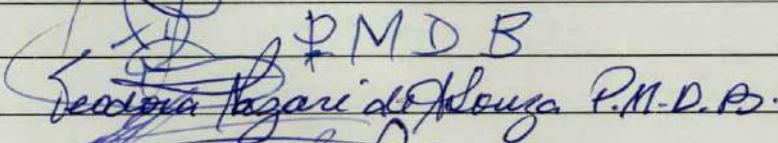 PMDB
Teodora Nazaré de Souza P.M.D.B.